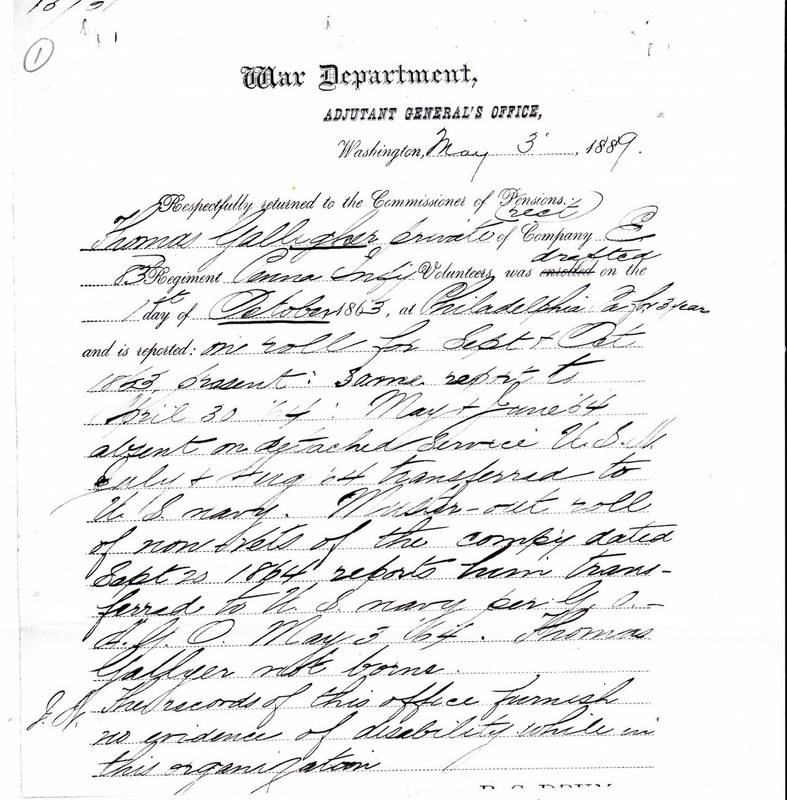 1
War Department,
ADJUTANT GENERAL'S OFFICE,
Washington, May 3, 1889.
Respectfully returned to the Commissioner of Pensions.
(rect)
Thomas Gallagher, private of Company E
drafted
83 Regiment Penna Infy Volunteers, was enrolled on the
1st day of October 1863, at Philadelphia Pa for 3 year
and is reported: on roll for Sept & Oct
1863, present: Same report to
April 30 '64: May & June '64
absent on detached service U.S.N.
July & Aug '64 transferred to
U.S. navy. Muster-out roll
of non-vets of the comp'y dated
Sept 20 1864 reports him trans-
ferred to U.S. navy per G.O.-
A.G.O. May 3 '64. Thomas
Gallyer not borne.
The records of this office furnish
no evidence of disability while in
this organization
R. C. DRUM